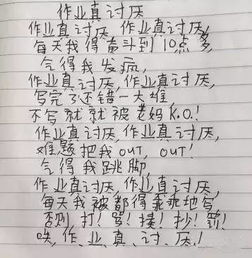 作业真讨厌
作业真讨厌,作业真讨厌,
每天我得奋斗到10点多,
气得我发疯,
作业真讨厌,作业真讨厌,
写完了还错一大堆
不写就就被老妈K.O.!
作业真讨厌作业真讨厌,
难题把我OUT,OUT!
气得我跳脚,
作业真讨厌作业真讨厌,
每天我被都得乖乖地写
否则,打!骂!揍!抄!罚!
唉,作、业、真、讨、厌!